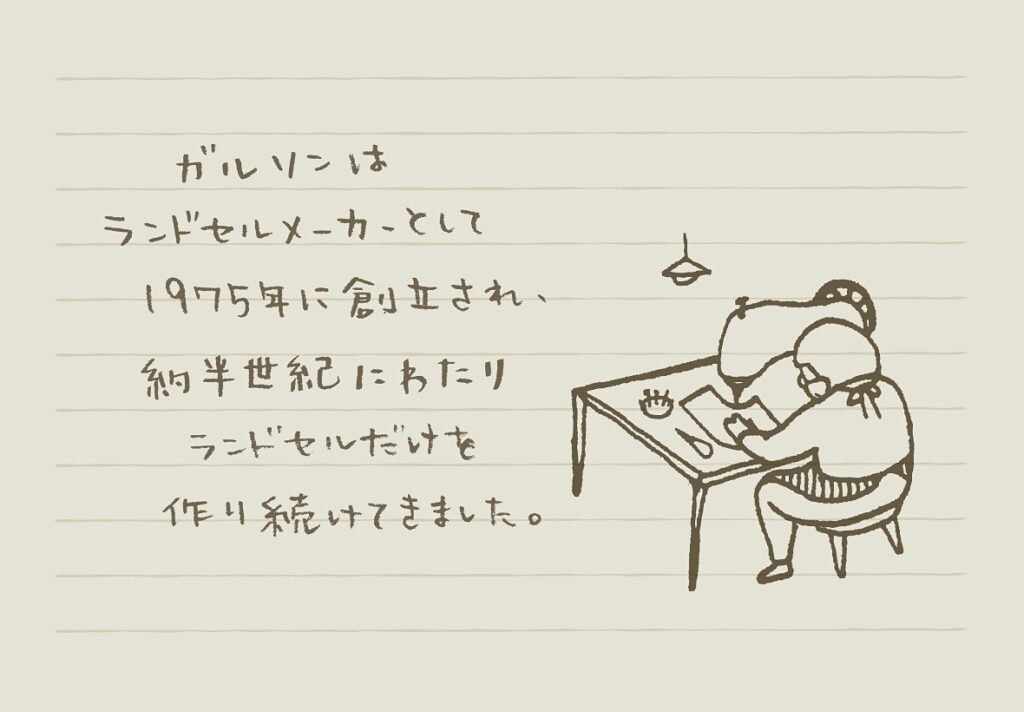 ガルソンは
ランドセルメーカーとして
1975年に創立され、
約半世紀にわたり
ランドセルだけを
作り続けてきました。